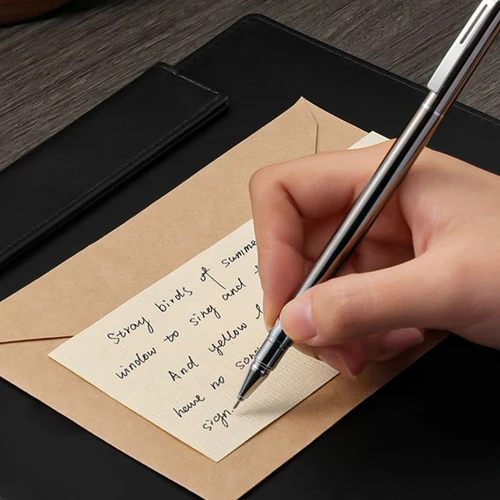 Stray birds of summe
window to sing and t
And yellow l
have no son
sign.